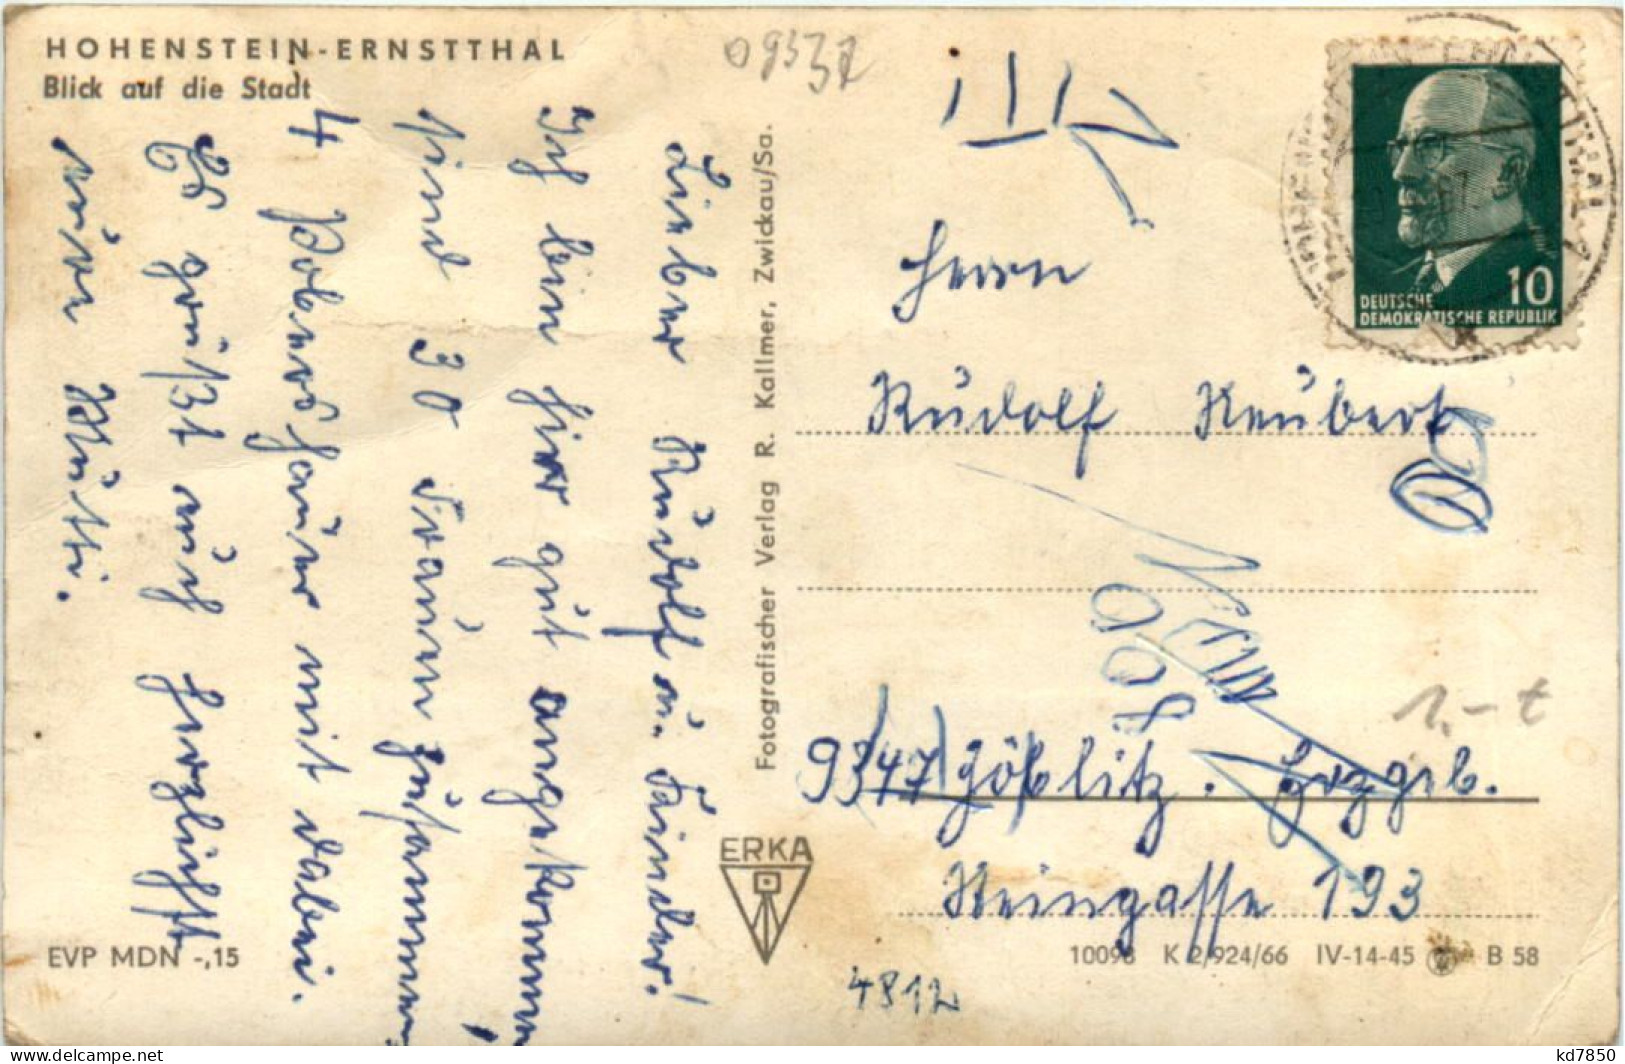 HOHENSTEIN-ERNSTTHAL
Blick auf die Stadt
Lieber Rudolf u. Kinder!
Ich bin hier gut angekommen,
sind 30 Frauen zusammen
4 Pobershauer mit dabei.
Es grüßt euch herzlichst
eure Mutti.
EVP MDN -,15
Fotografischer Verlag R. Kallmer, Zwickau/Sa.
ERKA
DEUTSCHE
DEMOKRATISCHE REPUBLIK
10
Herrn
Rudolf Neubert
9347 Erzgeb.
193
1.- t
10098 K 2/924/66 IV-14-45 B 58
4812
kd7850